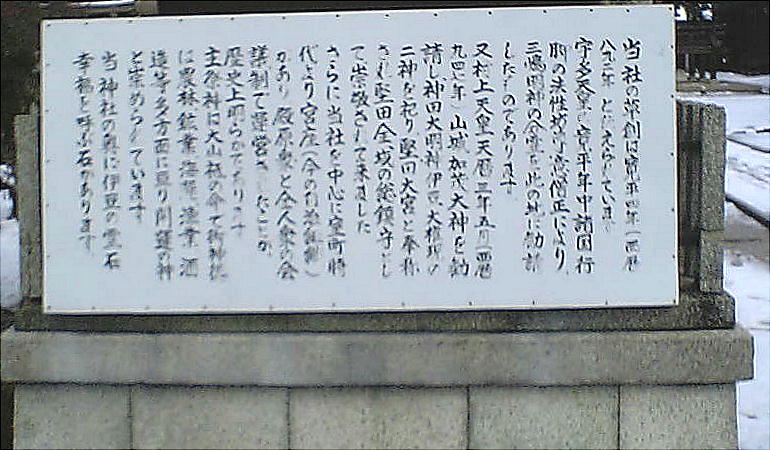 当社の草創は寛平四年(西暦
八九二年)と伝えられています
宇多天皇の寛平年中諸国行
脚の法性坊尊意僧正により
三嶋明神の分霊を此の地に勧請
したものであります
又村上天皇天暦三年五月(西暦
九四七年)山城加茂大神を勧
請し神田大明神伊豆大権現の
二神を祀り堅田大宮と奉称
され堅田全域の総鎮守とし
て崇敬されて来ました
さらに当社を中心に室町時
代より宮座(今の自治組織)
があり殿原衆と全人衆の会
議制で運営されたことが
歴史上明らかであります
主祭神は大山祇の命で御神徳
は農林鉱業海運漁業酒
造等多方面に亘り開運の神
と崇められています
当神社の奥に伊豆の霊石
幸福を呼ぶ石があります